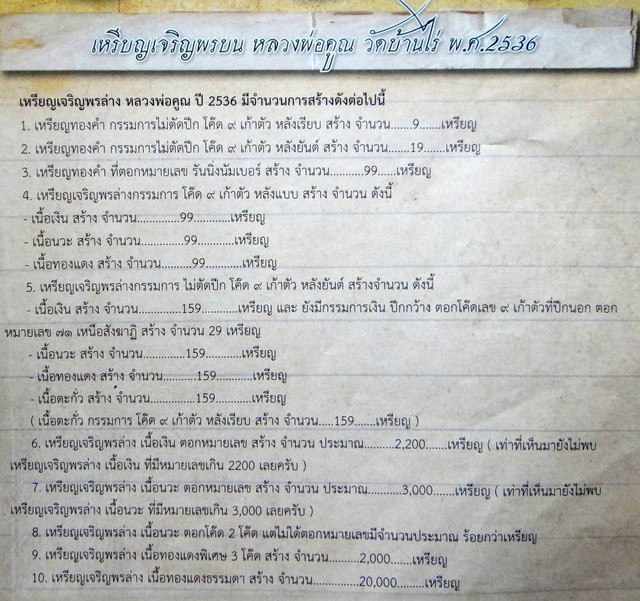 เหรียญเจริญพรบน หลวงพ่อคูณ วัดบ้านไร่ พ.ศ.2536
เหรียญเจริญพรล่าง หลวงพ่อคูณ ปี 2536 มีจำนวนการสร้างดังต่อไปนี้
1. เหรียญทองคำ กรรมการไม่ตัดปีก โค๊ด ๙ เก้าตัว หลังเรียบ สร้าง จำนวน.......9.......เหรียญ
2. เหรียญทองคำ กรรมการไม่ตัดปีก โค๊ด ๙ เก้าตัว หลังยันต์ สร้าง จำนวน.......19.......เหรียญ
3. เหรียญทองคำ ที่ตอกหมายเลข รันนิ่งนัมเบอร์ สร้าง จำนวน...........99......เหรียญ
4. เหรียญเจริญพรล่างกรรมการ โค๊ด ๙ เก้าตัว หลังแบบ สร้าง จำนวน ดังนี้
- เนื้อเงิน สร้าง จำนวน..............99............เหรียญ
- เนื้อนวะ สร้าง จำนวน..............99............เหรียญ
- เนื้อทองแดง สร้าง จำนวน..........99............เหรียญ
5. เหรียญเจริญพรล่างกรรมการ ไม่ตัดปีก โค๊ด ๙ เก้าตัว หลังยันต์ สร้างจำนวน ดังนี้
- เนื้อเงิน สร้าง จำนวน..............159............เหรียญ และ ยังมีกรรมการเงิน ปีกกว้าง ตอกโค๊ดเลข ๙ เก้าตัวที่ปีกนอก ตอก
หมายเลข ๗๑ เหนือสังฆาฏิ สร้าง จำนวน 29 เหรียญ
- เนื้อนวะ สร้าง จำนวน..............159............เหรียญ
- เนื้อทองแดง สร้าง จำนวน...........159............เหรียญ
- เนื้อตะกั่ว สร้าง จำนวน...............159............เหรียญ
( เนื้อตะกั่ว กรรมการ โค๊ด ๙ เก้าตัว หลังเรียบ สร้าง จำนวน.....159.......เหรียญ )
6. เหรียญเจริญพรล่าง เนื้อเงิน ตอกหมายเลข สร้าง จำนวน ประมาณ..........2,200.......เหรียญ ( เท่าที่เห็นมายังไม่พบ
เหรียญเจริญพรล่าง เนื้อเงิน ที่มีหมายเลขเกิน 2200 เลยครับ )
7. เหรียญเจริญพรล่าง เนื้อนวะ ตอกหมายเลข สร้าง จำนวน ประมาณ...........3,000.......เหรียญ ( เท่าที่เห็นมายังไม่พบ
เหรียญเจริญพรล่าง เนื้อนวะ ที่มีหมายเลขเกิน 3,000 เลยครับ )
8. เหรียญเจริญพรล่าง เนื้อนวะ ตอกโค๊ด 2 โค๊ด แต่ไม่ได้ตอกหมายเลขมีจำนวนประมาณ ร้อยกว่าเหรียญ
9. เหรียญเจริญพรล่าง เนื้อทองแดงพิเศษ 3 โค๊ด สร้าง จำนวน..........2,000.......เหรียญ
10. เหรียญเจริญพรล่าง เนื้อทองแดงธรรมดา สร้าง จำนวน..............20,000.........เหรียญ